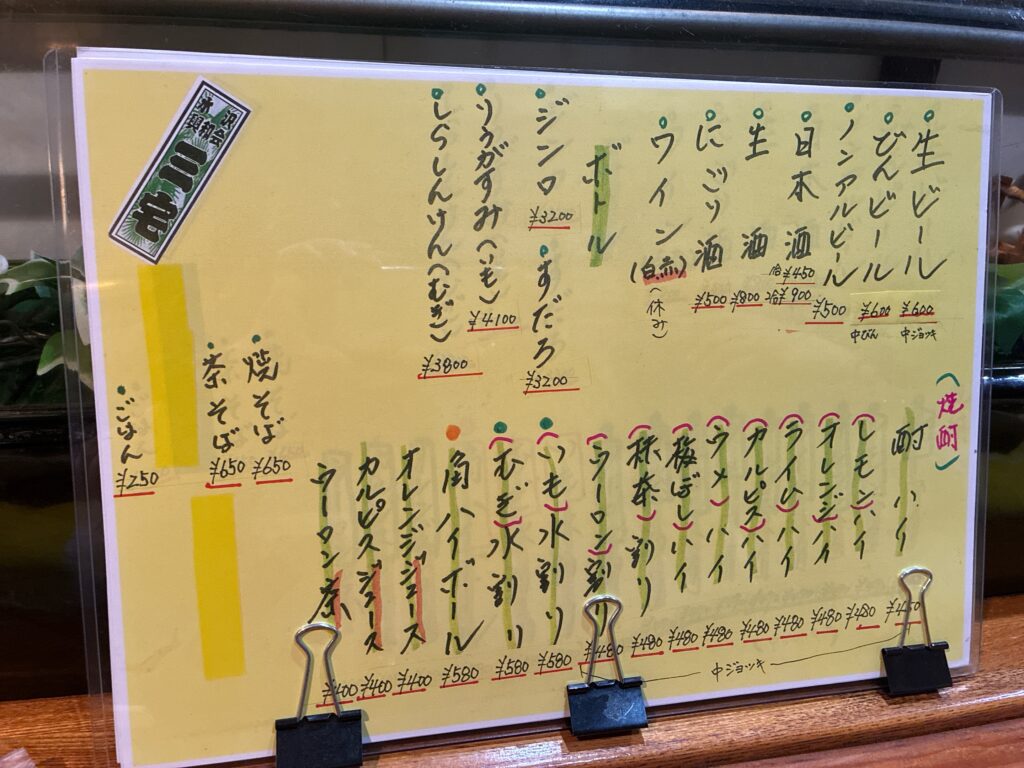 生ビール ¥600 中ジョッキ
びんビール ¥600 中びん
ノンアルビール ¥500
日本酒 ¥450 ¥900
生酒 ¥800
にごり酒 ¥500
ワイン(白,赤)(休み)
ボトル
ジンロ ¥3200
すだろ ¥3200
りうがすみ(いも) ¥4100
しらしんけん(むぎ) ¥3800
(焼酎)
酎ハイ ¥450
(レモン)ハイ ¥480
(オレンジ)ハイ ¥480
(ライム)ハイ ¥480
(カルピス)ハイ ¥480
(ウメ)ハイ ¥480
(梅ぼし)ハイ ¥480
(抹茶)割り ¥480
(ウーロン)割り ¥480
中ジョッキ
(いも)水割り ¥580
(むぎ)水割り ¥580
角ハイボール ¥580
オレンジジュース ¥400
カルピスジュース ¥400
ウーロン茶 ¥400
焼そば ¥650
茶そば ¥650
ごはん ¥250
三宅